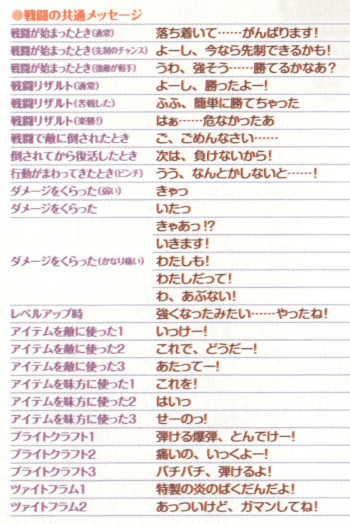 ●戦闘の共通メッセージ
戦闘が始まったとき(通常) 落ち着いて……がんばります！
戦闘が始まったとき(先制のチャンス) よーし、今なら先制できるかも！
戦闘が始まったとき(強敵が相手) うわ、強そう……勝てるかなあ？
戦闘リザルト(通常) よーし、勝ったよー！
戦闘リザルト(苦戦した) ふふ、簡単に勝てちゃった
戦闘リザルト(楽勝！) はぁ……危なかったあ
戦闘で敵に倒されたとき ご、ごめんなさい……
倒されてから復活したとき 次は、負けないから！
行動がまわってきたとき(ピンチ) うう、なんとかしないと……！
ダメージをくらった(弱い) きゃっ
ダメージをくらった いたっ
ダメージをくらった(かなり痛い) きゃあっ!?
いきます！
わたしも！
わたしだって！
わ、あぶない！
レベルアップ時 強くなったみたい……やったね！
アイテムを敵に使った1 いっけー！
アイテムを敵に使った2 これで、どうだー！
アイテムを敵に使った3 あたってー！
アイテムを味方に使った1 これを！
アイテムを味方に使った2 はいっ
アイテムを味方に使った3 せーのっ！
ブライトクラフト1 弾ける爆弾、とんでけー！
ブライトクラフト2 痛いの、いっくよー！
ブライトクラフト3 バチバチ、弾けるよ！
ツァイトフラム1 特製の炎のばくだんだよ！
ツァイトフラム2 あっついけど、ガマンしてね！